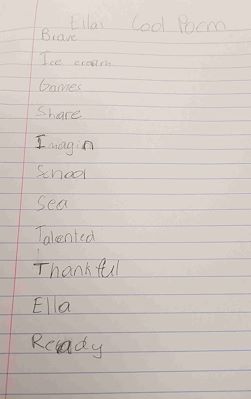 Ellas Cool Poem
Brave
Ice cream
Games
Share
Imagin
School
Sea
Talented
Thankful
Ella
Ready